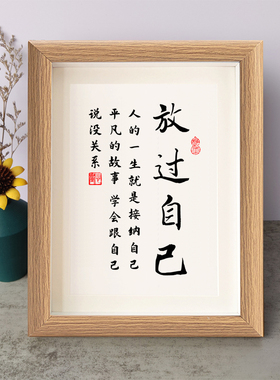 放过自己
人的一生就是接纳自己
平凡的故事 学会跟自己
说没关系